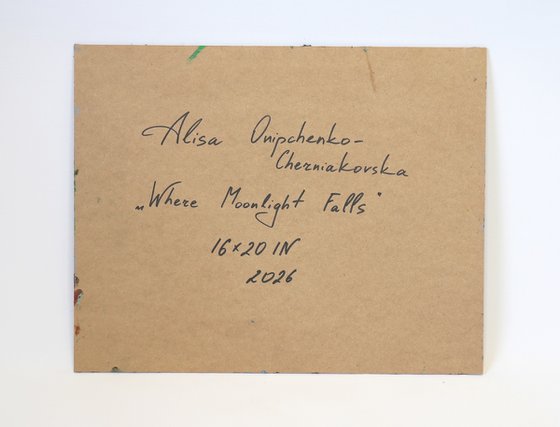 Alisa Onipchenko-
Cherniakovska
„Where Moonlight Falls"
16×20 IN
2026